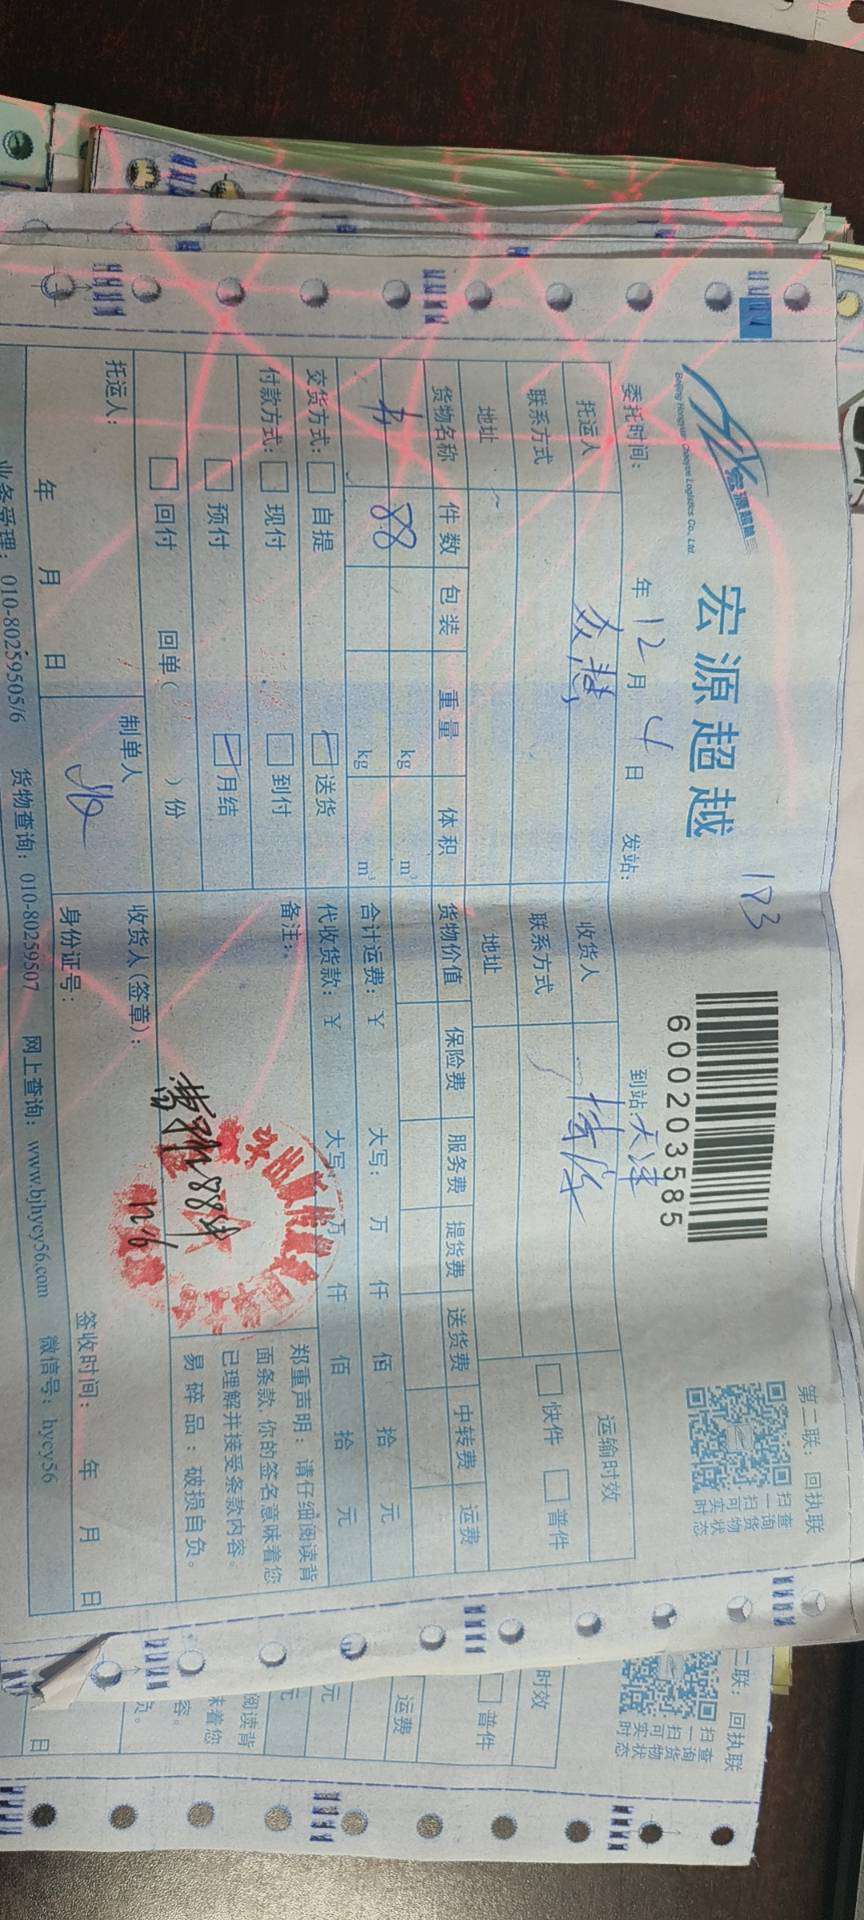 宏源超越
Beijing Hongyuan Chaoyue Logistics Co., Ltd.
183
6000203585
第二联：回执联
扫查
一询
扫货
可物
实状
时态
委托时间： 年 12 月 4 日 发站： 到站： 天津
托运人 收货人 运输时效
联系方式 联系方式 快件 普件
地址 地址
货物名称 件数 包装 重量 体积 货物价值 保险费 服务费 提货费 送货费 中转费 运费
88 kg m³ 合计运费：￥ 大写： 万 仟 佰 拾 元
kg m³ 代收货款：￥ 大写： 万 仟 佰 拾 元
交货方式： 自提 送货 备注：
付款方式： 现付 到付
预付 月结
回付 回单（ ）份
188件
12/6
郑重声明：请仔细阅读背
面条款 你的签名意味着您
已理解并接受条款内容。
易碎品：破损自负。
托运人： 制单人 收货人(签章)：
年 月 日 身份证号： 签收时间： 年 月 日
业务受理：010-80259505/6 货物查询：010-80259507 网上查询：www.bjhycy56.com 微信号：hycy56
二联：回执联
扫查
一询
扫货
可物
实状
时态
时效
普件
运费
元
元
阅读背
味着您
容。
负。
日